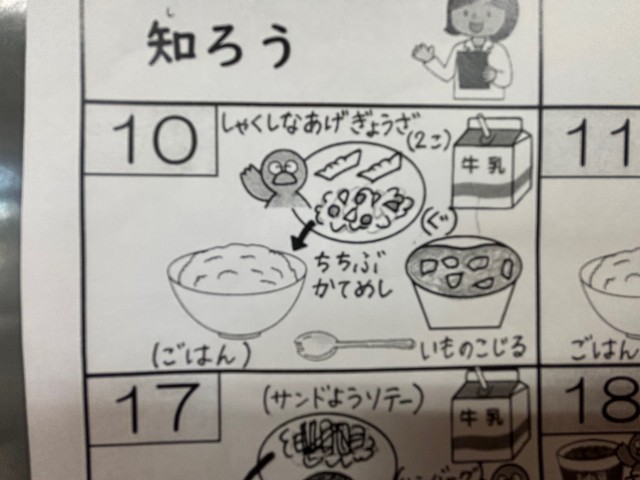 し
知ろう
10
しゃくしなあげぎょうざ
(2こ)
牛乳
11
(ぐ)
ちちぶ
かてめし
(ごはん)
いものこじる
ごはん
17
(サンドようソテー)
牛乳
18